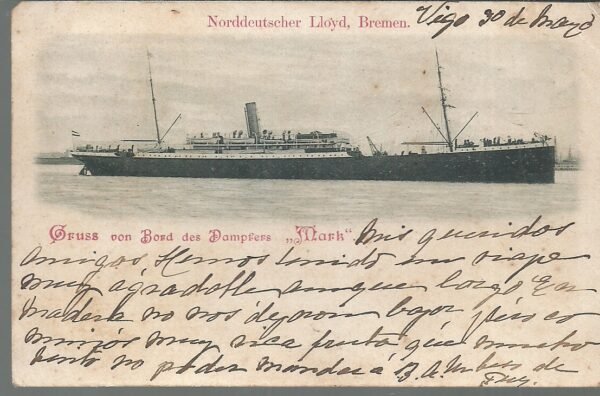 Norddeutscher Lloyd, Bremen.
Vigo 30 de Mayo
Gruss von Bord des Dampfers „Mark“.
Mis queridos
amigos Hemos tenido un viaje
muy ágradable aunque largo En
madera no nos dejaron bajar, pero
muy rica fruta que mucho
no poder mandar á B. A.